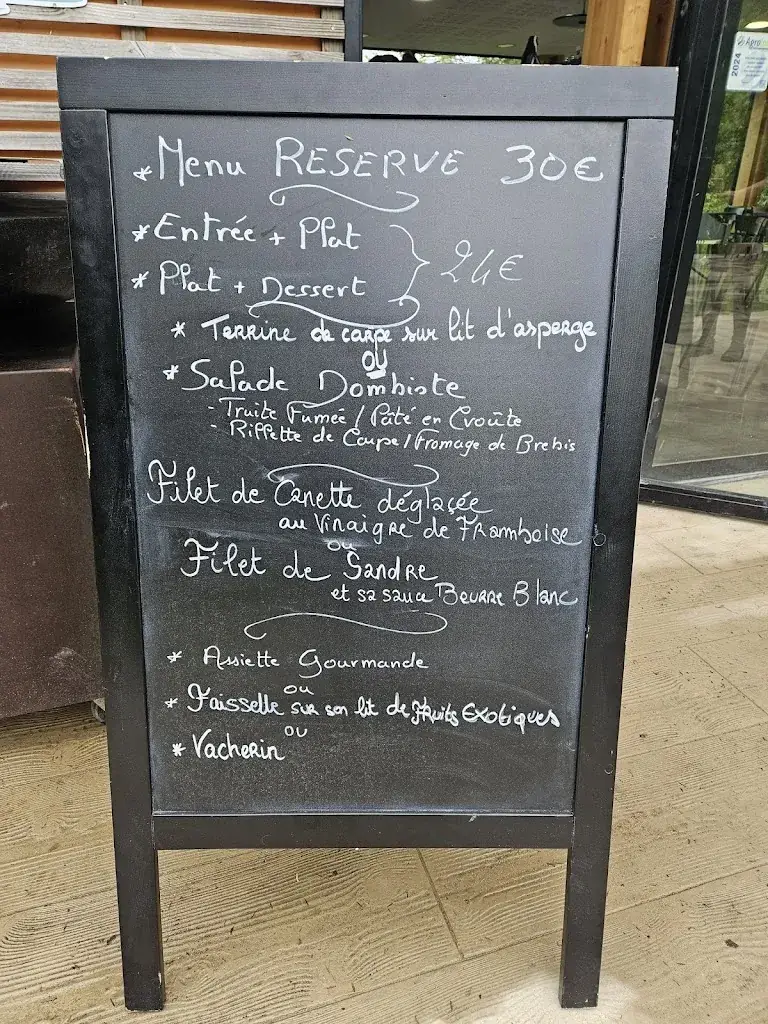 *Menu RESERVE 30€
*Entrée + Plat
* Plat + Dessert } 24€
* Terrine de carpe sur lit d'asperge
OU
* Salade Dombiste
- Truite Fumée / Pâté en Croûte
- Riffette de Carpe / Fromage de Brebis
Filet de Canette déglaçée
au Vinaigre de Framboise
ou
Filet de Sandre
et sa sauce Beurre Blanc
* Assiette Gourmande
ou
* Faisselle sur son lit de Fruits Exotiques
ou
* Vacherin
2024